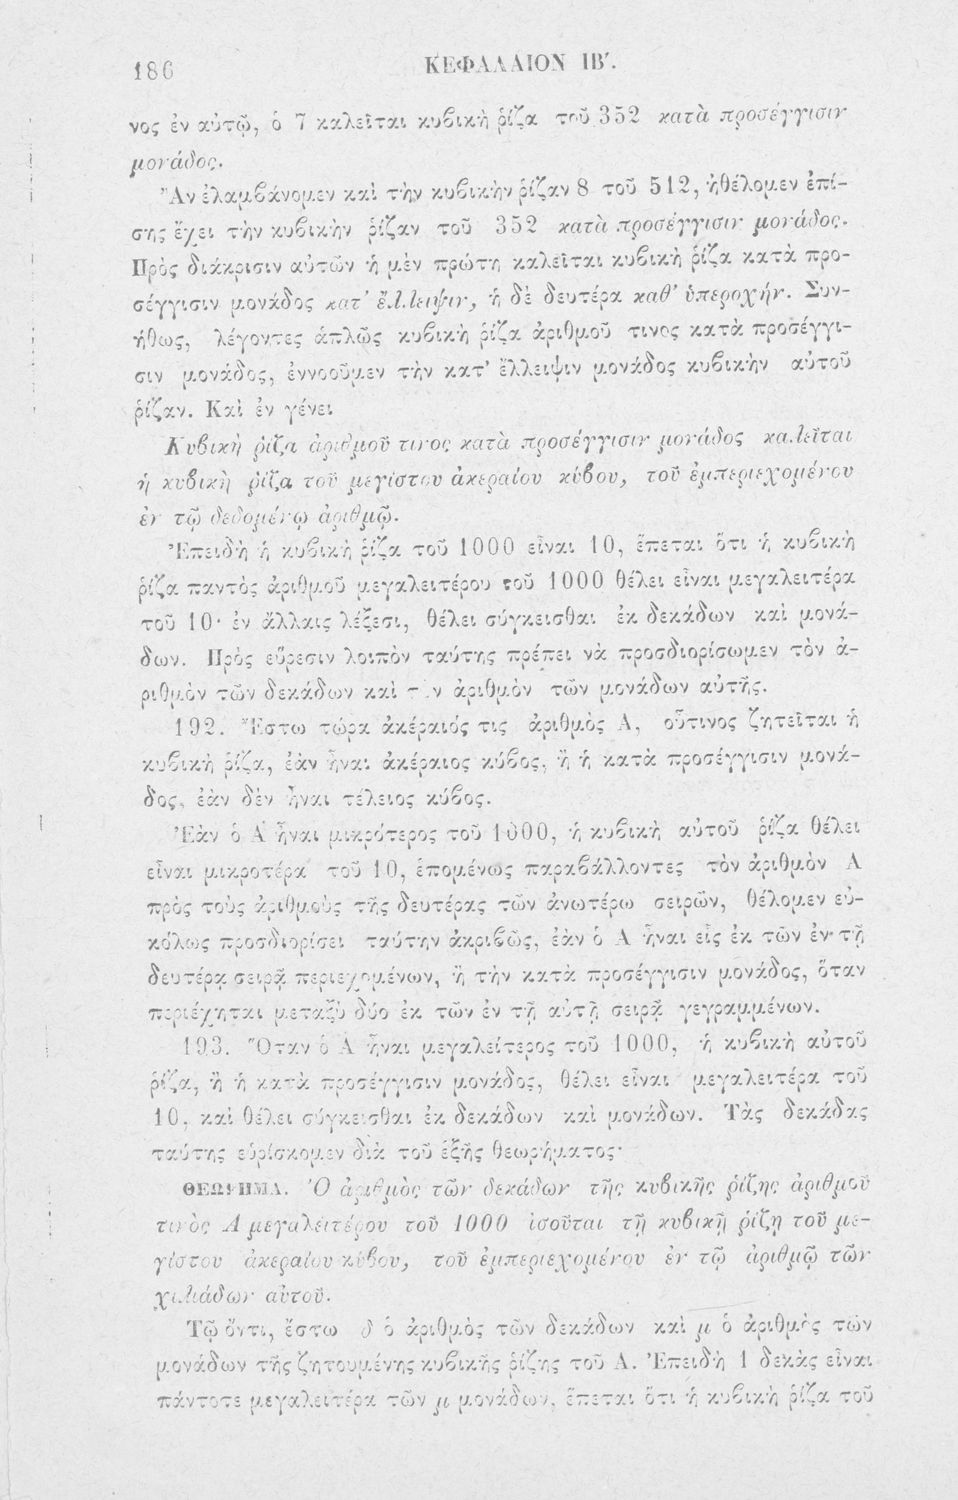 186
ΚΕΦΑΛΑΙΟΝ ΙΒ′.
νος ἐν αὐτῷ, ὁ 7 καλεῖται κυβικὴ ῥίζα τοῦ 352 κατὰ προσέγγισιν
μονάδος.
Ἂν ἐλαμβάνομεν καὶ τὴν κυβικὴν ῥίζαν 8 τοῦ 512, ἠθέλομεν ἐπί-
σης ἔχει τὴν κυβικὴν ῥίζαν τοῦ 352 κατὰ προσέγγισιν μονάδος.
Πρὸς διάκρισιν αὐτῶν ἡ μὲν πρώτη καλεῖται κυβικὴ ῥίζα κατὰ προ-
σέγγισιν μονάδος κατ᾽ ἔλλειψιν, ἡ δὲ δευτέρα καθ᾽ ὑπεροχήν. Συν-
ήθως, λέγοντες ἁπλῶς κυβικὴ ῥίζα ἀριθμοῦ τινος κατὰ προσέγγι-
σιν μονάδος, ἐννοοῦμεν τὴν κατ᾽ ἔλλειψιν μονάδος κυβικὴν αὐτοῦ
ῥίζαν. Καὶ ἐν γένει
Κυβικὴ ῥίζα ἀριθμοῦ τινος κατὰ προσέγγισιν μονάδος καλεῖται
ἡ κυβικὴ ῥίζα τοῦ μεγίστου ἀκεραίου κύβου, τοῦ ἐμπεριεχομένου
ἐν τῷ δεδομένῳ ἀριθμῷ.
Ἐπειδὴ ἡ κυβικὴ ῥίζα τοῦ 1000 εἶναι 10, ἕπεται ὅτι ἡ κυβικὴ
ῥίζα παντὸς ἀριθμοῦ μεγαλειτέρου τοῦ 1000 θέλει εἶναι μεγαλειτέρα
τοῦ 10· ἐν ἄλλαις λέξεσι, θέλει σύγκεισθαι ἐκ δεκάδων καὶ μονά-
δων. Πρὸς εὕρεσιν λοιπὸν ταύτης πρέπει νὰ προσδιορίσωμεν τὸν ἀ-
ριθμὸν τῶν δεκάδων καὶ τὸν ἀριθμὸν τῶν μονάδων αὐτῆς.
192. Ἔστω τώρα ἀκέραιός τις ἀριθμὸς Α, οὗτινος ζητεῖται ἡ
κυβικὴ ῥίζα, ἐὰν ἦναι ἀκέραιος κύβος, ἢ ἡ κατὰ προσέγγισιν μονά-
δος, ἐὰν δὲν ἦναι τέλειος κύβος.
Ἐὰν ὁ Α ἦναι μικρότερος τοῦ 1000, ἡ κυβικὴ αὐτοῦ ῥίζα θέλει
εἶναι μικροτέρα τοῦ 10, ἑπομένως παραβάλλοντες τὸν ἀριθμὸν Α
πρὸς τοὺς ἀριθμοὺς τῆς δευτέρας τῶν ἀνωτέρω σειρῶν, θέλομεν εὐ-
κόλως προσδιορίσει ταύτην ἀκριβῶς, ἐὰν ὁ Α ἦναι εἷς ἐκ τῶν ἐν τῇ
δευτέρᾳ σειρᾷ περιεχομένων, ἢ τὴν κατὰ προσέγγισιν μονάδος, ὅταν
περιέχηται μεταξὺ δύο ἐκ τῶν ἐν τῇ αὐτῇ σειρᾷ γεγραμμένων.
193. Ὅταν ὁ Α ἦναι μεγαλείτερος τοῦ 1000, ἡ κυβικὴ αὐτοῦ
ῥίζα, ἢ ἡ κατὰ προσέγγισιν μονάδος, θέλει εἶναι μεγαλειτέρα τοῦ
10, καὶ θέλει σύγκεισθαι ἐκ δεκάδων καὶ μονάδων. Τὰς δεκάδας
ταύτης εὑρίσκομεν διὰ τοῦ ἑξῆς θεωρήματος·
ΘΕΩΡΗΜΑ. Ὁ ἀριθμὸς τῶν δεκάδων τῆς κυβικῆς ῥίζης ἀριθμοῦ
τινὸς Α μεγαλειτέρου τοῦ 1000 ἰσοῦται τῇ κυβικῇ ῥίζῃ τοῦ με-
γίστου ἀκεραίου κύβου, τοῦ ἐμπεριεχομένου ἐν τῷ ἀριθμῷ τῶν
χιλιάδων αὐτοῦ.
Τῷ ὄντι, ἔστω δ ὁ ἀριθμὸς τῶν δεκάδων καὶ μ ὁ ἀριθμὸς τῶν
μονάδων τῆς ζητουμένης κυβικῆς ῥίζης τοῦ Α. Ἐπειδὴ 1 δεκὰς εἶναι
πάντοτε μεγαλειτέρα τῶν μ μονάδων, ἕπεται ὅτι ἡ κυβικὴ ῥίζα τοῦ